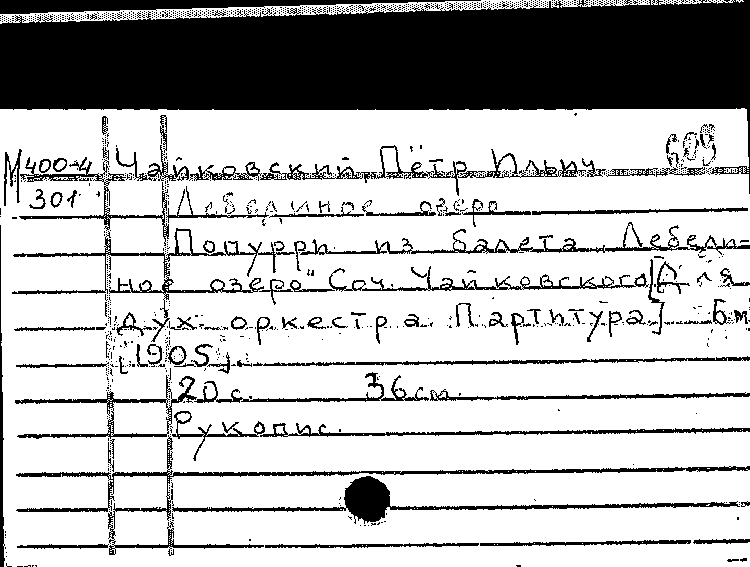 М 400-4 Чайковский, Пётр Ильич 609
301 Лебединое озеро
Попурри из балета „Лебеди-
ное озеро" Соч. Чайковского [Для
дух. оркестра. Партитура] Бм
[1905].
20 с. 36 см.
Рукопис.